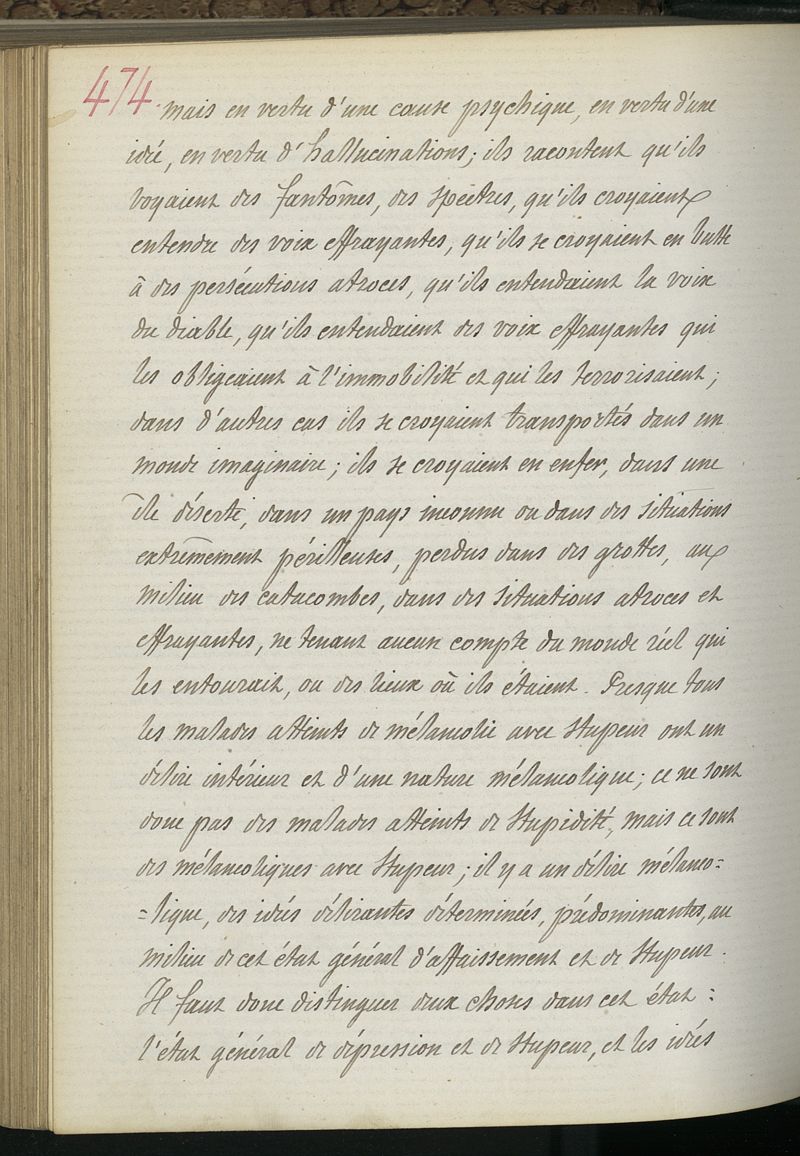 474
mais en vertu d'une cause psychique, en vertu d'une
idée, en vertu d'hallucinations; ils racontent qu'ils
voyaient des fantômes, des spectres, qu'ils croyaient
entendre des voix effrayantes, qu'ils se croyaient en butte
à des persécutions atroces, qu'ils entendaient la voix
du diable, qu'ils entendaient des voix effrayantes qui
les obligeaient à l'immobilité et qui les terrorisaient;
dans d'autres cas ils se croyaient transportés dans un
monde imaginaire; ils se croyaient en enfer, dans une
île déserte, dans un pays inconnu ou dans des situations
extrêmement périlleuses, perdus dans des grottes, au
milieu des catacombes, dans des situations atroces et
effrayantes, ne tenant aucun compte du monde réel qui
les entourait, ou des lieux où ils étaient. Presque tous
les malades atteints de mélancolie avec stupeur ont un
délire intérieur et d'une nature mélancolique; ce ne sont
donc pas des malades atteints de stupidité, mais ce sont
des mélancoliques avec stupeur; il y a un délire mélanco=
=lique, des idées délirantes déterminées, prédominantes, au
milieu de cet état général d'affaissement et de stupeur.
Il faut donc distinguer deux choses dans cet état:
l'état général de dépression et de stupeur, et les idées